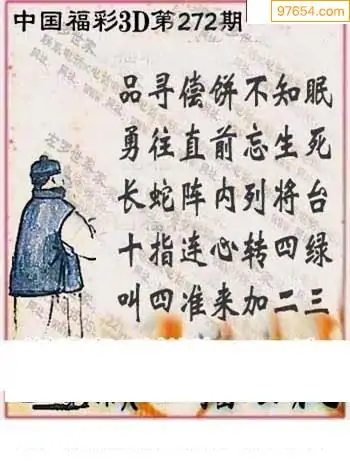 97654.com
中国福彩3D第272期
品寻偿饼不知眠
勇往直前忘生死
长蛇阵内列将台
十指连心转四绿
叫四准来加二三